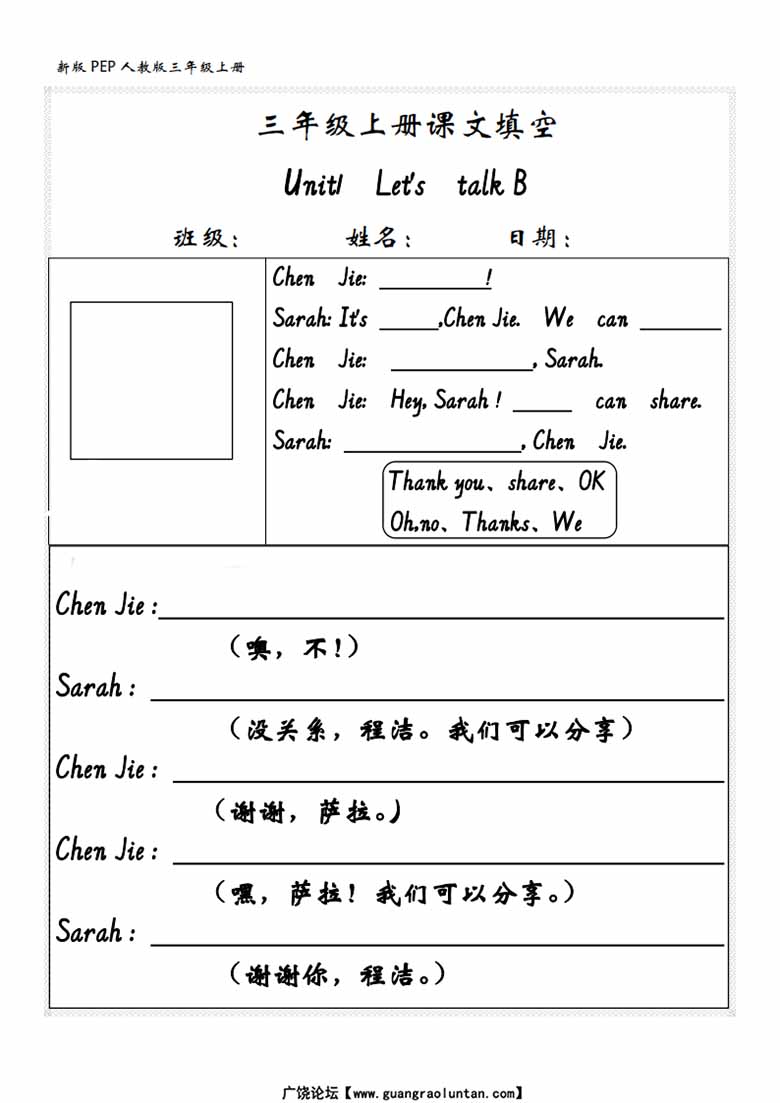 新版 PEP 人教版三年级上册
三年级上册课文填空
Unit1 Let's talk B
班级: 姓名: 日期:
Chen Jie: __________!
Sarah: It's _____,Chen Jie. We can _______
Chen Jie: ____________, Sarah.
Chen Jie: Hey, Sarah ! _____ can share.
Sarah: _______________, Chen Jie.
Thank you、share、OK
Oh,no、Thanks、We
Chen Jie :
(噢，不!)
Sarah :
(没关系，程洁。我们可以分享)
Chen Jie :
(谢谢，萨拉。)
Chen Jie :
(嘿，萨拉! 我们可以分享。)
Sarah :
(谢谢你，程洁。)
广饶论坛【www.guangraoluntan.com】